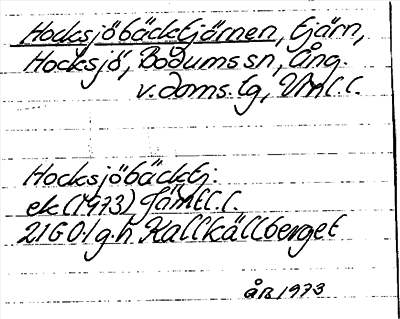 Hocksjöbäcktjärnen, tjärn,
Hocksjö, Bodums sn, Ång.
v. doms. tg, Vnl. l.
Hocksjöbäcktj.
ek (1973) Jämtl. l.
21G 0-1 g-h Kallkällberget
ÅB 1973